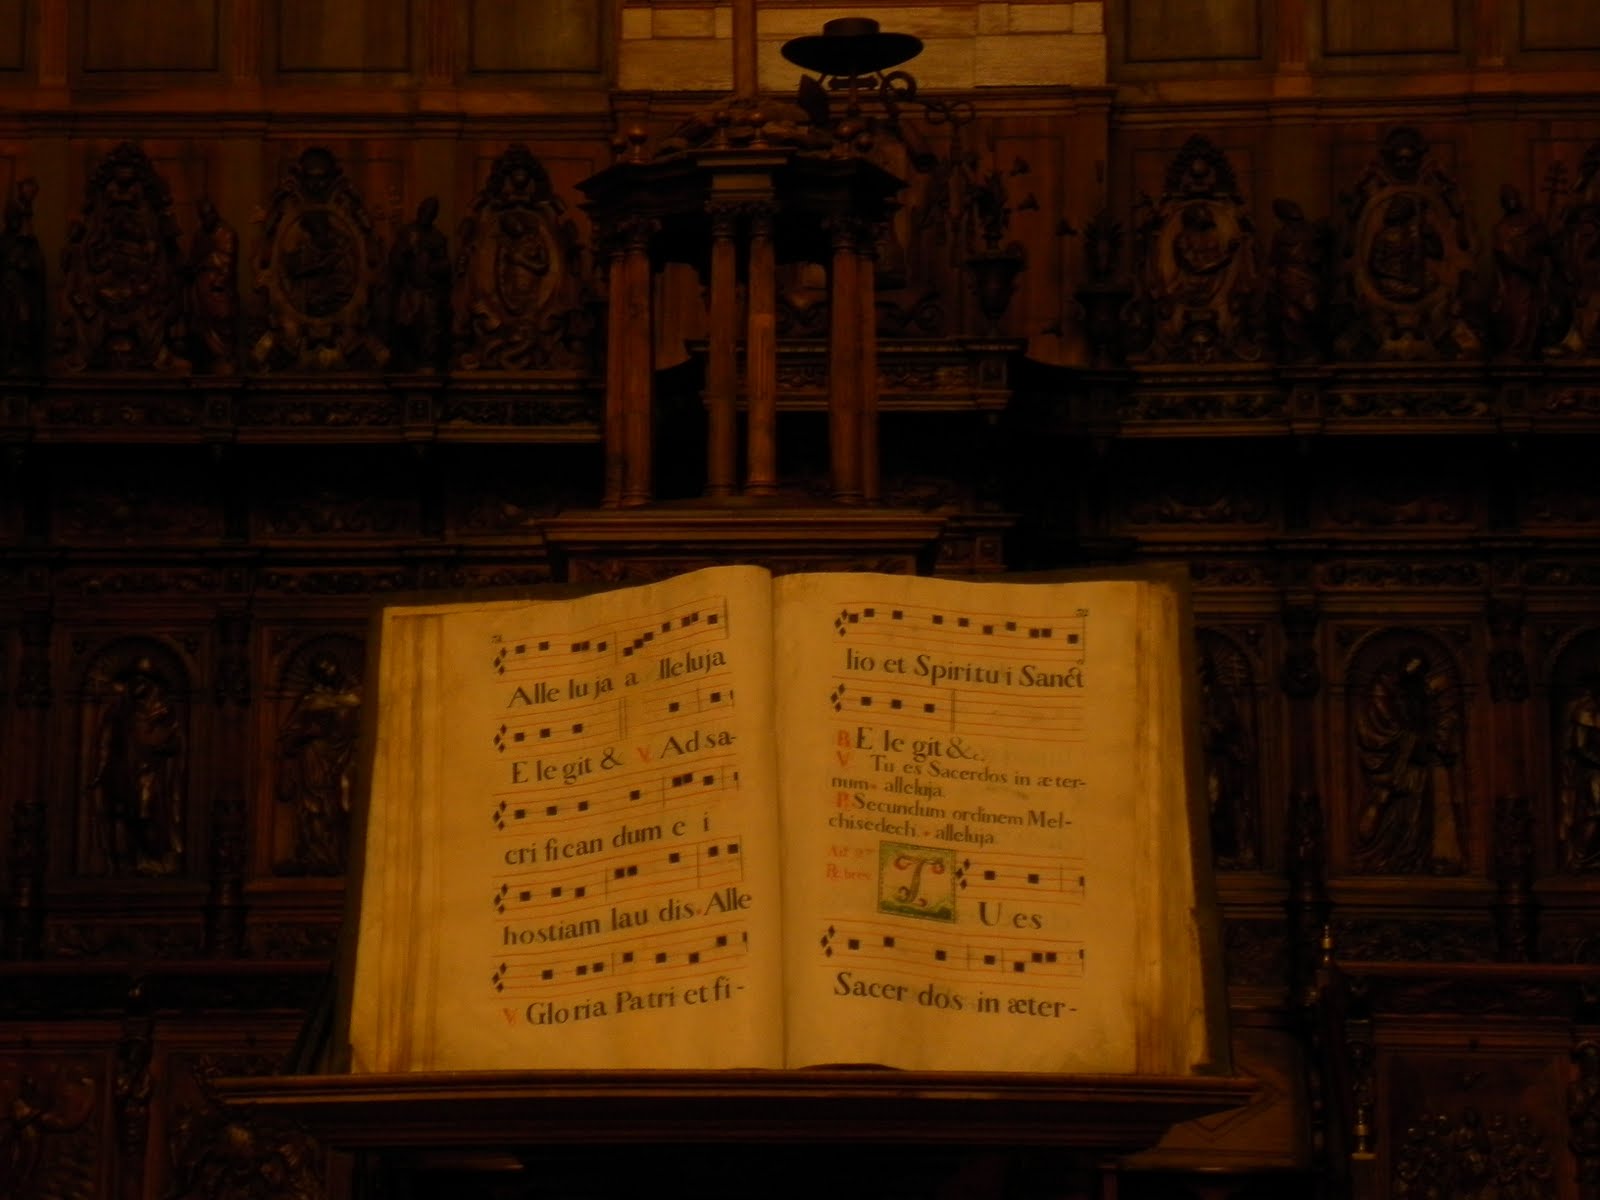 Alle lu ja a lleluja
E le git & V. Ad sa-
cri fi can dum e i
hostiam lau dis. Alle
V. Gloria Patri et fi-
lio et Spiritu i Sanct
R. E le git &c.
V. Tu es Sacerdos in æter-
num. alleluja.
Secundum ordinem Mel-
chisedech. alleluja.
T
U es
Sacer dos in æter-